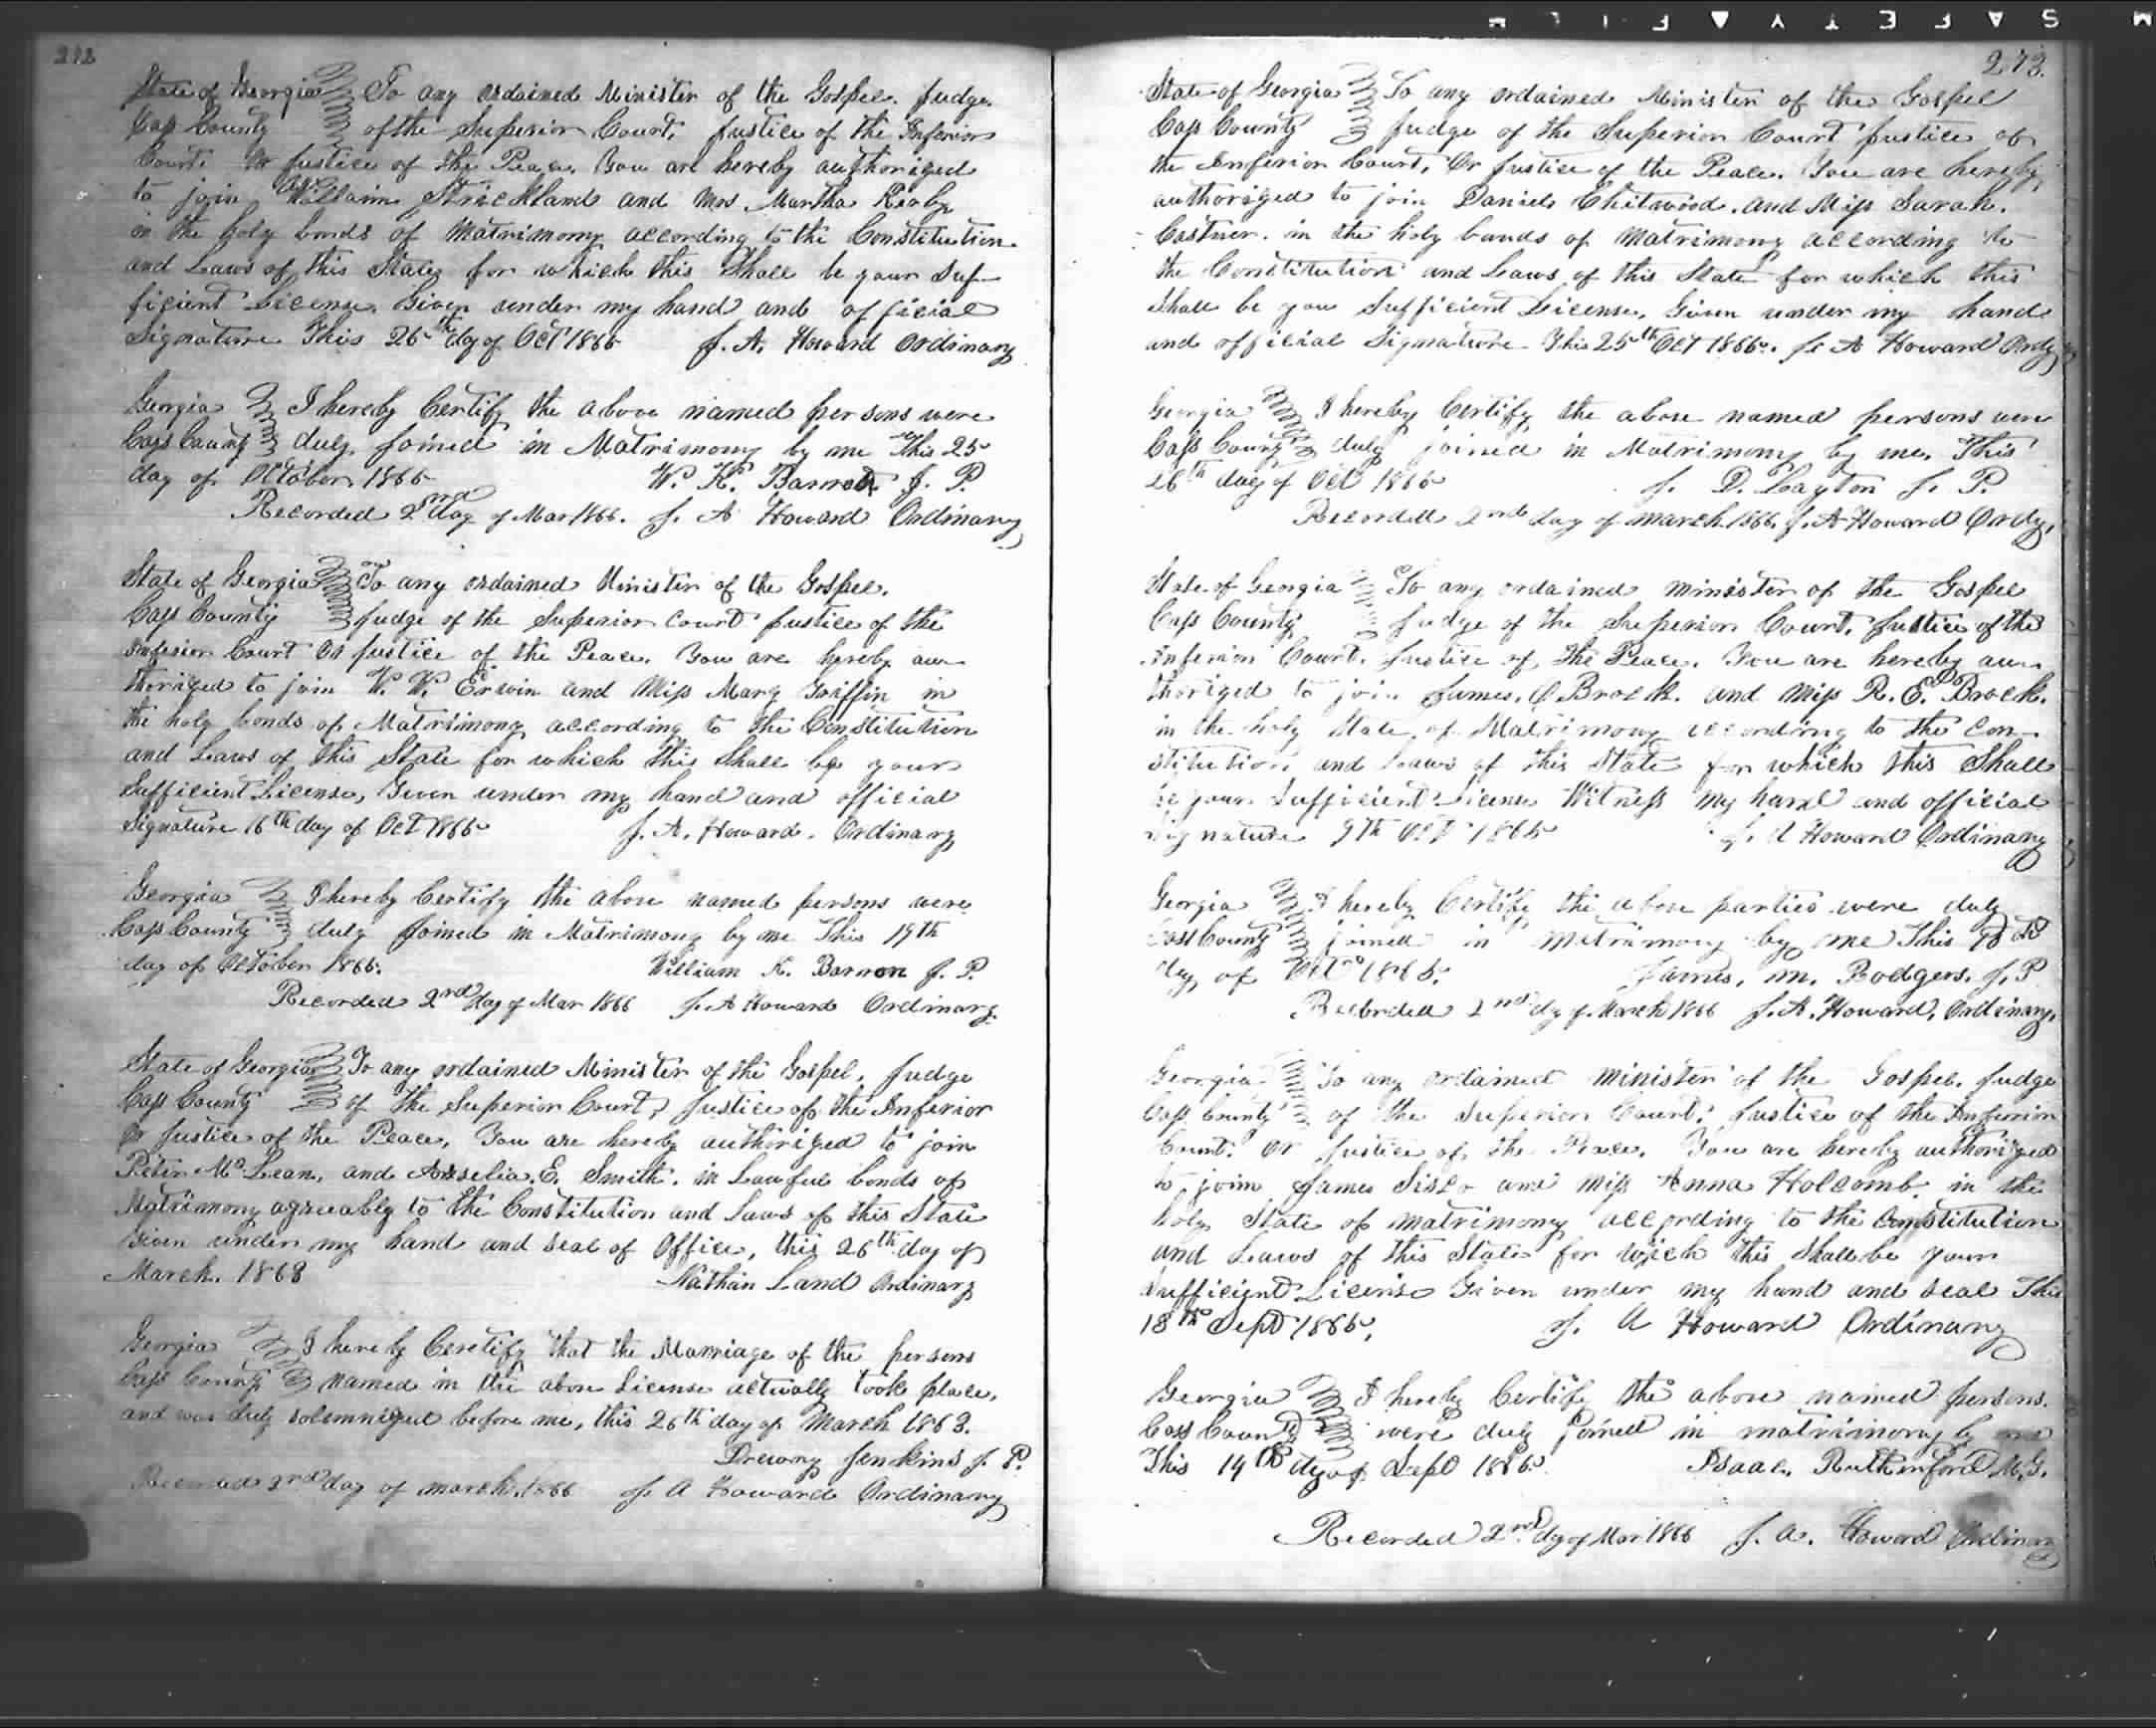 272
State of Georgia To any ordained Minister of the Gospel. Judge
Cass County of the Superior Court, Justice of the Inferior
Court. Or Justice of the Peace. You are hereby authorized
to join William Strickland and Mrs Martha
in the holy bonds of Matrimony according to the Constitution
and Laws of this State for which this Shall be your Suf-
ficient License. Given under my hand and official
Signature This 25th day of Oct 1865 J. A. Howard Ordinary
Georgia I hereby Certify the above named persons were
Cass County duly Joined in Matrimony by me This 25
day of October 1865 W. K. J. P.
Recorded 2nd day of Mar 1866. J. A Howard Ordinary
State of Georgia To any ordained Minister of the Gospel.
Cass County Judge of the Superior Court Justice of the
Inferior Court Or Justice of the Peace. You are hereby au-
thorized to join W. W. Erwin and Miss Mary Griffin in
the holy bonds of Matrimony according to the Constitution
and Laws of this State for which this Shall be your
Sufficient License, Given under my hand and official
Signature 16th day of Oct 1865 J. A. Howard. Ordinary
Georgia I hereby Certify the above named persons were
Cass County duly Joined in Matrimony by me This 19th
day of October 1865. William K. J. P.
Recorded 2nd day of Mar 1866 J. A Howard Ordinary.
State of Georgia To any ordained Minister of the Gospel, Judge
Cass County of the Superior Court, Justice of the Inferior
Or Justice of the Peace, You are hereby authorized to join
Peter McLean, and E. Smith. in Lawful bonds of
Matrimony agreeably to the Constitution and Laws of this State
Given under my hand and seal of Office, this 26th day of
March. 1863 Nathan Land Ordinary
Georgia I hereby Certify that the Marriage of the persons
Cass County named in the above License actually took place,
and was duly solemnized before me, this 26th day of March 1863.
Drewry Jenkins J. P.
Recorded 2nd day of march 1866 J. A Howard Ordinary
273.
State of Georgia To any ordained Minister of the Gospel
Cass County Judge of the Superior Court Justice of
the Inferior Court, Or Justice of the Peace. You are hereby
authorized to join Daniel Chitwood. and Miss Sarah.
Castner. in the holy bonds of Matrimony according to
the Constitution and Laws of this State for which this
Shall be your Sufficient License, Given under my hand
and official Signature This 25th Oct 1865. J. A Howard Ordy
Georgia I hereby Certify the above named persons were
Cass County duly joined in Matrimony by me, This
26th day of Oct 1865 J. D. Layton J. P.
Recorded 2nd day of march 1866, J. A Howard Ordy.
State of Georgia To any ordained minister of the Gospel
Cass County Judge of the Superior Court, Justice of the
Inferior Court, Justice of the Peace. You are hereby au-
thorized to join James. Brock. and Miss R. E. Brock.
in the holy State of Matrimony according to the Con-
stitution and Laws of this State for which this Shall
be your Sufficient License Witness my hand and official
signature 7th Oct 1865 J. A Howard Ordinary
Georgia I hereby Certify the above parties were duly
Cass County joined in matrimony by me This
day of Oct 1865. James, m. Rodgers. J. P
Recorded 2nd dy of March 1866 J. A. Howard, Ordinary.
Georgia To any ordained minister of the Gospel. Judge
Cass County of the Superior Court, Justice of the Inferior
Court. Or Justice of the Peace, You are hereby authorized
to join James and Miss Anna Holcomb. in the
holy State of matrimony according to the Constitution
and Laws of this State for which this Shall be your
sufficient License Given under my hand and seal This
18th Sept 1865, J. A Howard Ordinary
Georgia I hereby Certify the above named persons.
Cass County were duly Joined in matrimony by me
This 19th dy of Sept 1865. Isaac. Rutherford M. G.
Recorded 2nd dy of Mar 1866 J. A. Howard Ordinary
S A F E T Y F I L M